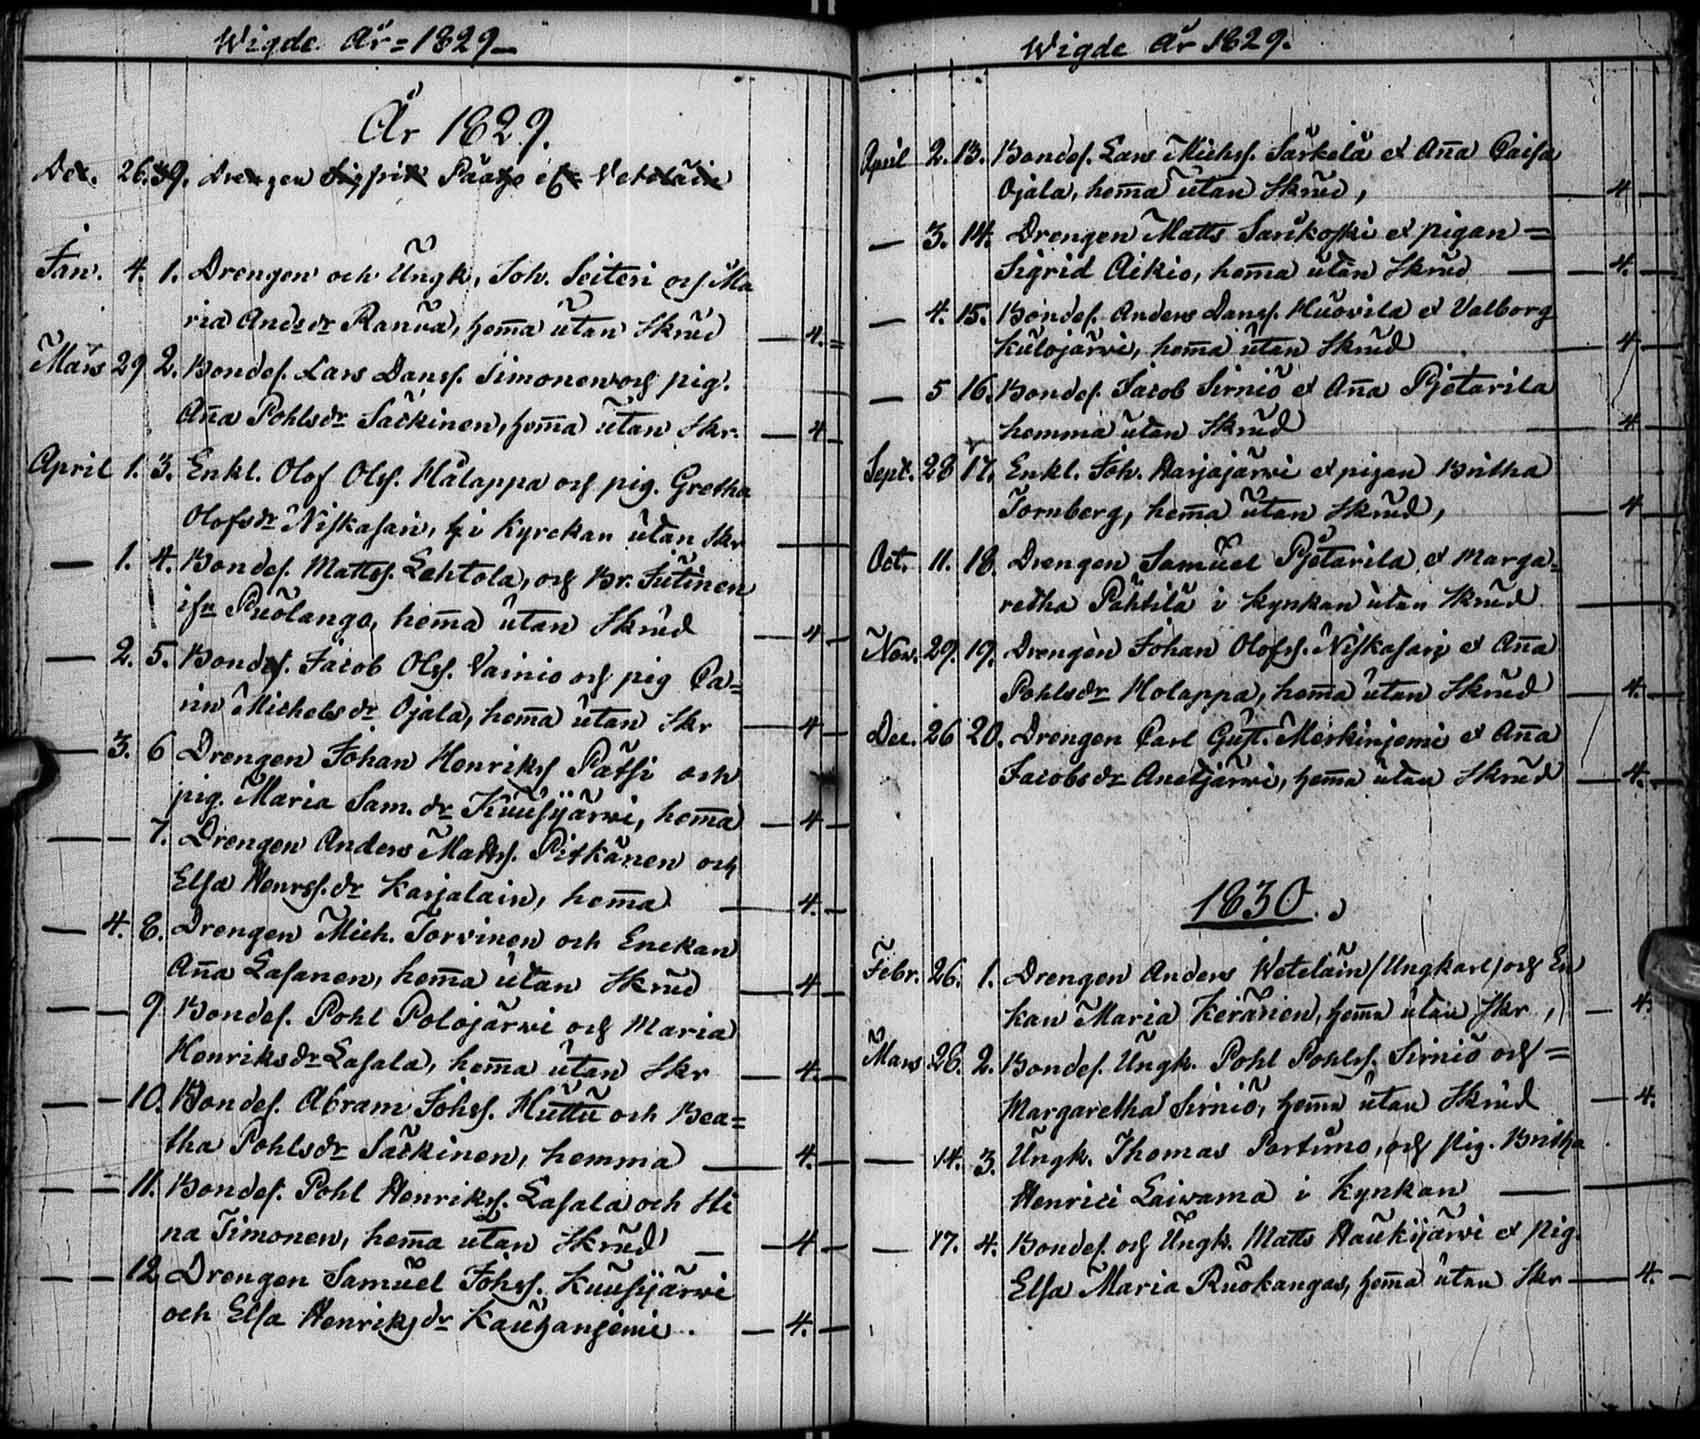 Wigde År = 1829
År 1829.
Dec. 26. 39. Drengen Sigfrid Paayo et Vetelain
Jan. 4. 1. Drengen och Ungk, Joh. Seiteri och Ma
ria Andsdr Ranua, hem̄a utan Skrud — 4. =
Mars 29 2. Bondes. Lars Danss. Simonen och pig.
An̄a Pohlsdr Säckinen, hem̄a utan Skr. — 4 —
April 1. 3. Enkl. Olof Olss. Hålappa och pig. Gretha
Olofsdr Niskasari, i Kyrckan utan Skr —
— 1. 4. Bondes. Mattss. Lehtola, och Br. Jutinen
ifrn Puolango, hem̄a utan Skrud — 4 —
— 2. 5. Bondes. Jacob Olss. Vainio och pig Ca=
rin Michelsdr Ojala, hem̄a utan Skr — 4 —
— 3. 6 Drengen Johan Henrikss Pätsi och
pig. Maria Sam.dr Kuusijärvi, hem̄a — 4 —
— — 7. Drengen Anders Mattss. Pitkänen och
Elsa Henrss.dr Karjalain, hem̄a — 4. —
— 4. 8. Drengen Mich. Torvinen och Enckan
An̄a Lasanen, hem̄a utan Skrud — 4 —
— — 9 Bondes. Pohl Polojärvi och Maria
Henriksdr Lasala, hem̄a utan Skr — 4. —
— — 10. Bondes. Abram Johss. Huttu och Bea=
tha Pohlsdr Säckinen, hemma — 4. —
— — 11. Bondes. Pohl Henrikss. Lasala och Sti
na Timonen, hem̄a utan Skrud — 4 —
— — 12 Drengen Samuel Johss. Kuusijärvi
och Elsa Henriksdr Kauhanjemi. — 4. —
Wigde År 1829.
April 2. 13. Bondes. Lars Michss. Särkelä et An̄a Caisa
Ojala, hem̄a utan Skrud, — 4 —
— 3. 14. Drengen Matts Sarikoski et pigan =
Sigrid Aikio, hem̄a utan Skrud — 4. —
— 4. 15. Bondes. Anders Danss. Huovila et Valborg
Kulojärvi, hem̄a utan Skrud — 4 —
— 5 16. Bondes. Jacob Sirniö et An̄a Pjetarila
hemma utan Skrud — 4 —
Sept. 28 17. Enkl. Joh. Aarjajärvi et pigan Britha
Tornberg, hem̄a utan Skrud, — 4 —
Oct. 11. 18. Drengen Samuel Pjetarila et Marga=
retha Pahtila i Kyrkan utan Skrud —
Nov. 29. 19. Drengen Johan Olofss. Niskasari et An̄a
Pohlsdr Holappa, hem̄a utan Skrud — 4. —
Dec. 26 20. Drengen Carl Gust. Märkinjemi et An̄a
Jacobsdr Anetjärvi, hem̄a utan Skrud — 4. —
1830.
Febr. 26. 1. Drengen Anders Wetelain /Ungkarl/ och En
kan Maria Keränen, hem̄a utan Skr, — 4.
Mars 28. 2. Bondes. Ungk. Pohl Pohlss. Sirniö och =
Margaretha Sirniö, hem̄a utan Skrud — 4.
— 14. 3. Ungk. Thomas Portimo, och pig. Britha
Henrici Laivama i Kyrkan —
— 17. 4. Bondes. och Ungk. Matts Haukijärvi et pig.
Elsa Maria Ruokangas, hem̄a utan Skr — 4. —